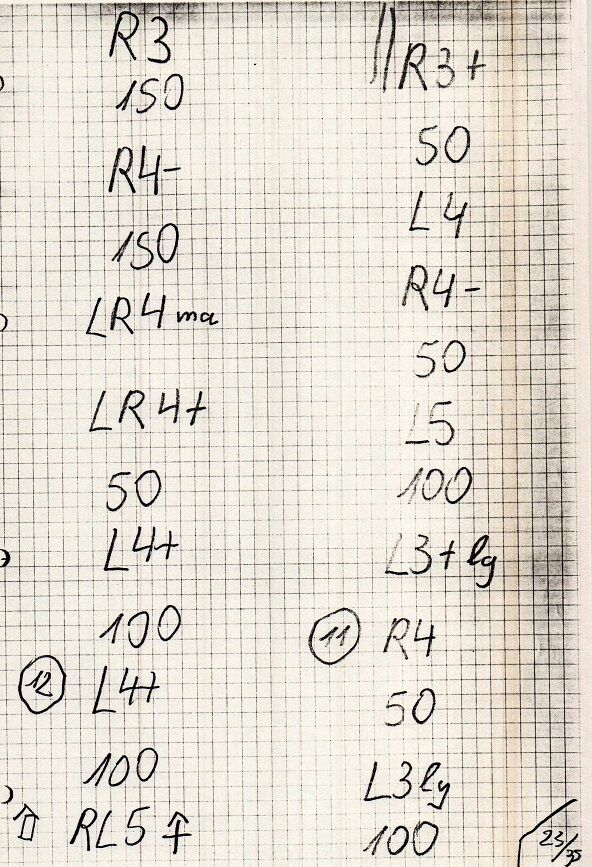 R3
150
R4-
150
LR4 ma
LR4+
50
L4+
100
12 L4+
100
⇧ RL5 ↑
|| R3+
50
L4
R4-
50
L5
100
L3+ lg
11 R4
50
L3 lg
100
23/35